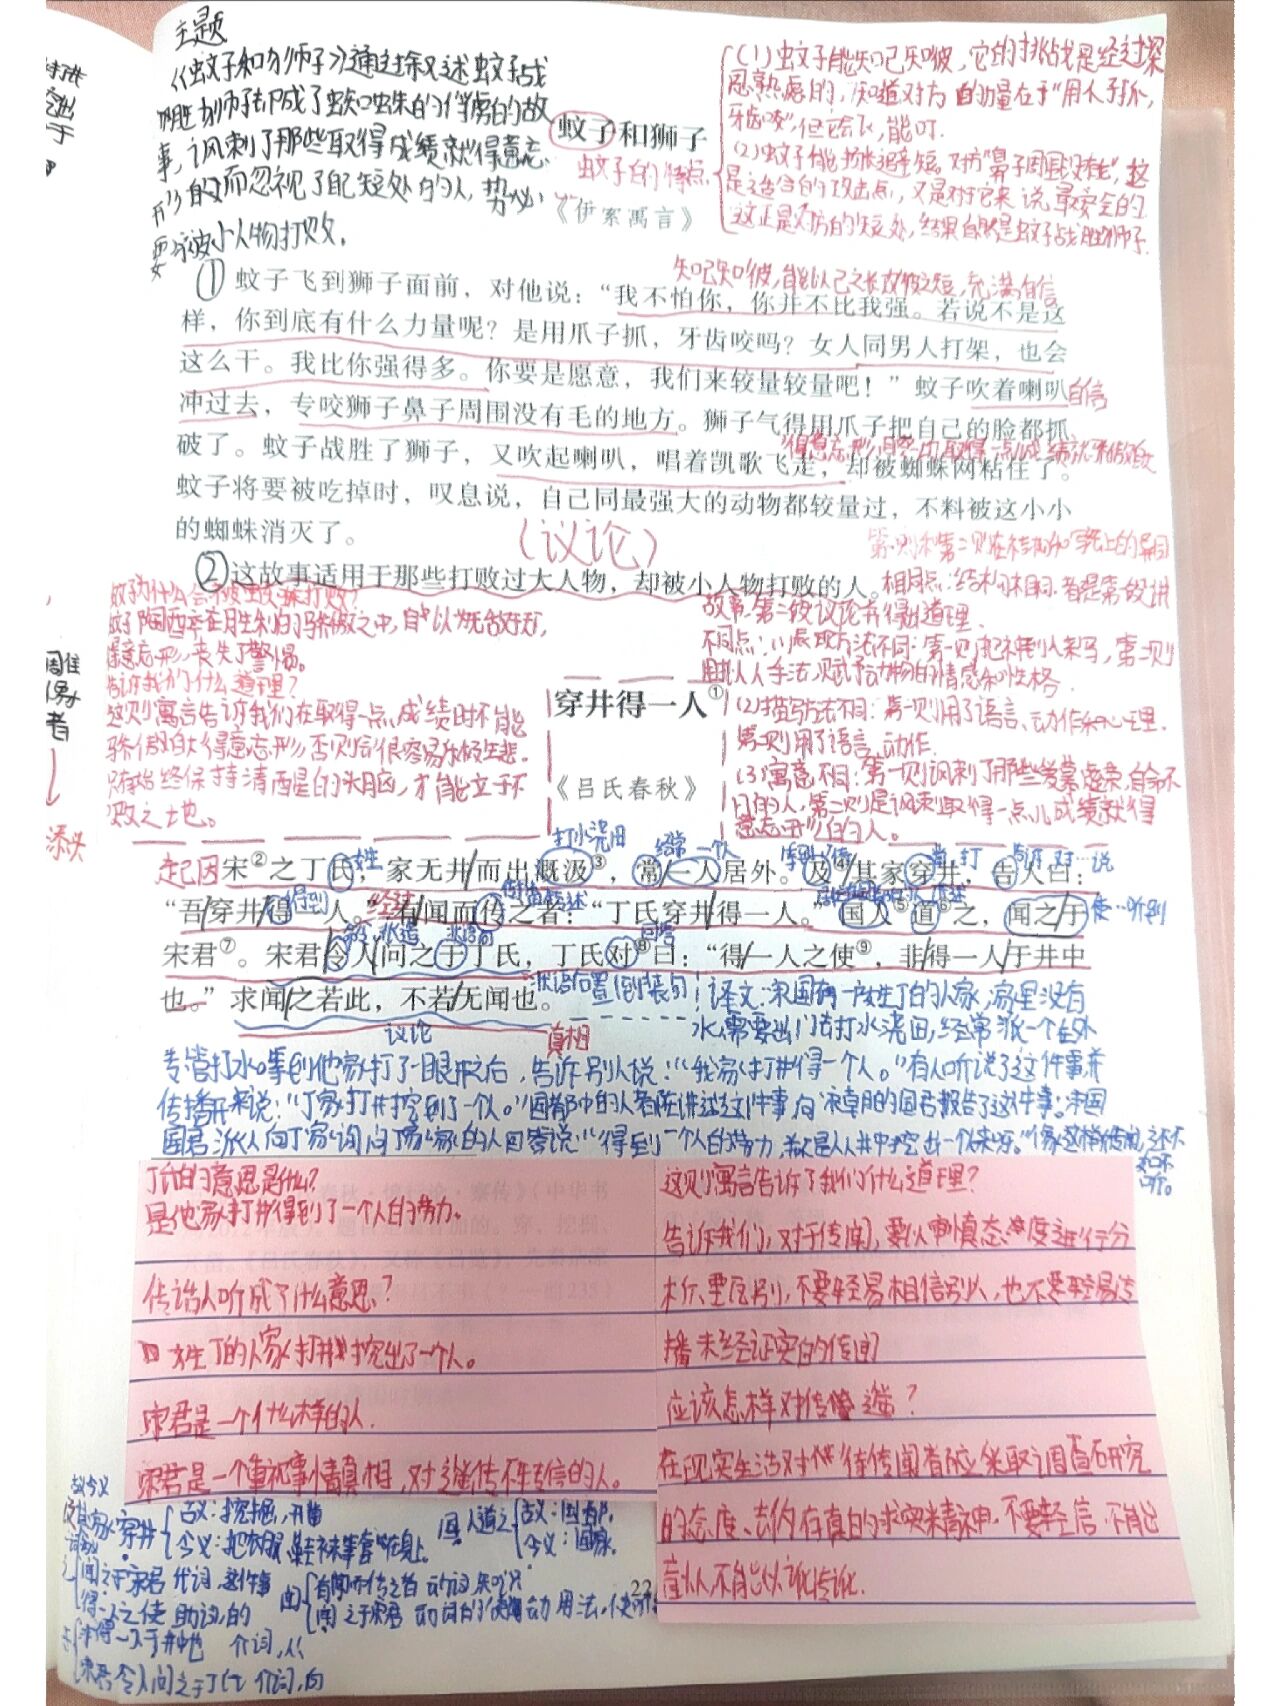 主题
《蚊子和狮子》通过叙述蚊子战
胜狮子却成了蜘蛛的俘虏的故
事，讽刺了那些取得成绩就得意忘
形的而忽视了自己短处的人，势必
要被小人物打败。
(1)蚊子能知己知彼，它的挑战是经过深
思熟虑的，知道对方的力量在于“用爪子抓，
牙齿咬”，但它会飞，能叮.
(2)蚊子能扬长避短。对方“鼻子周围没有毛”，这
是适合的攻击点，又是对于它来说最安全的.
这正是对方的短处，结果自然是蚊子战胜狮子.
蚊子和狮子
蚊子的特点
《伊索寓言》
知己知彼，能以己之长攻彼之短，充满自信
① 蚊子飞到狮子面前，对他说：“我不怕你，你并不比我强。若说不是这
样，你到底有什么力量呢？是用爪子抓，牙齿咬吗？女人同男人打架，也会
这么干。我比你强得多。你要是愿意，我们来较量较量吧！”蚊子吹着喇叭
自信
冲过去，专咬狮子鼻子周围没有毛的地方。狮子气得用爪子把自己的脸都抓
破了。蚊子战胜了狮子，又吹起喇叭，唱着凯歌飞走，却被蜘蛛网粘住了。
蚊子将要被吃掉时，叹息说，自己同最强大的动物都较量过，不料被这小小
的蜘蛛消灭了。
(议论)
②这故事适用于那些打败过大人物，却被小人物打败的人。
第一则和第二则在结构和写法上的异同
相同点：结构相同.都是第一段讲
故事，第二段议论并得出道理.
不同点：(1)表现方法不同：第一则把神回到人来写，第二则
用拟人手法，赋予动物的情感和性格.
(2)描写方法不同：第一则用了语言、动作和心理.
第二则用了语言、动作.
(3)寓意不同：第一则讽刺了那些爱慕虚荣，自命不
凡的人，第二则是讽刺取得一点儿成绩就得
意忘形的人。
蚊子为什么会被蜘蛛打败？
蚊子陶醉在胜利的骄傲之中，自以为无敌好玩，
得意忘形，丧失了警惕。
告诉我们什么道理？
这则寓言告诉我们在取得一点成绩时不能
骄傲自大得意忘形，否则会很容易乐极生悲。
只有始终保持清醒的头脑，才能立于不
败之地。
穿井得一人①
《吕氏春秋》
打水浇田
起因
宋②之丁氏，家无井而出溉汲③，常一人居外。及④其家穿井，告人曰：
“吾穿井得一人。”有闻而传之者：“丁氏穿井得一人。”国人⑤道⑥之，闻之于
宋君⑦。宋君令人问之于丁氏，丁氏对⑧曰：“得一人之使⑨，非得一人于井中
也。”求闻之若此，不若无闻也。
状语后置(倒装句)
议论
真相
译文：宋国有一户姓丁的人家，家里没有
水，需要出门去打水浇田，经常派一个在外
专管打水。等到他家打了一眼井之后，告诉别人说：“我家打井得一个人。”有人听说了这件事并
传播开来说：“丁家打井挖到了一个人。”国都中的人都在讲述这件事，向宋国的国君报告了这件事。宋国
国君派人向丁家询问，丁家的人回答说：“得到一个人的劳力，并不是从井中挖出一个人来呀。”像这样传闻，还不
如不
听。
丁氏的意思是什么？
是他家打井得到了一个人的劳力。
传话人听成了什么意思？
姓丁的人家打井挖出了一个人。
宋君是一个什么样的人.
宋君是一个重视事情真相，对谣传不轻信的人。
这则寓言告诉了我们什么道理？
告诉我们，对于传闻，要以审慎态度进行分
析、要辨别，不要轻易相信别人，也不要轻易传
播未经证实的传闻
应该怎样对待传谣？
在现实生活对待传闻者应采取调查研究
的态度、去伪存真的求实精神，不要轻信，不能
盲从，不能以讹传讹.
古今义
及其家穿井
古义：挖掘，开凿
今义：把衣服、鞋袜等套在身上.
国人道之
古义：国都.
今义：国家.
之
闻之于宋君 代词，这件事
得一人之使 助词，的
闻
有闻而传之者 动词，知道
闻之于宋君 动词的使动用法，使听到
于
非得一人于井中也 介词，从
宋君令人问之于丁氏 介词，向
22